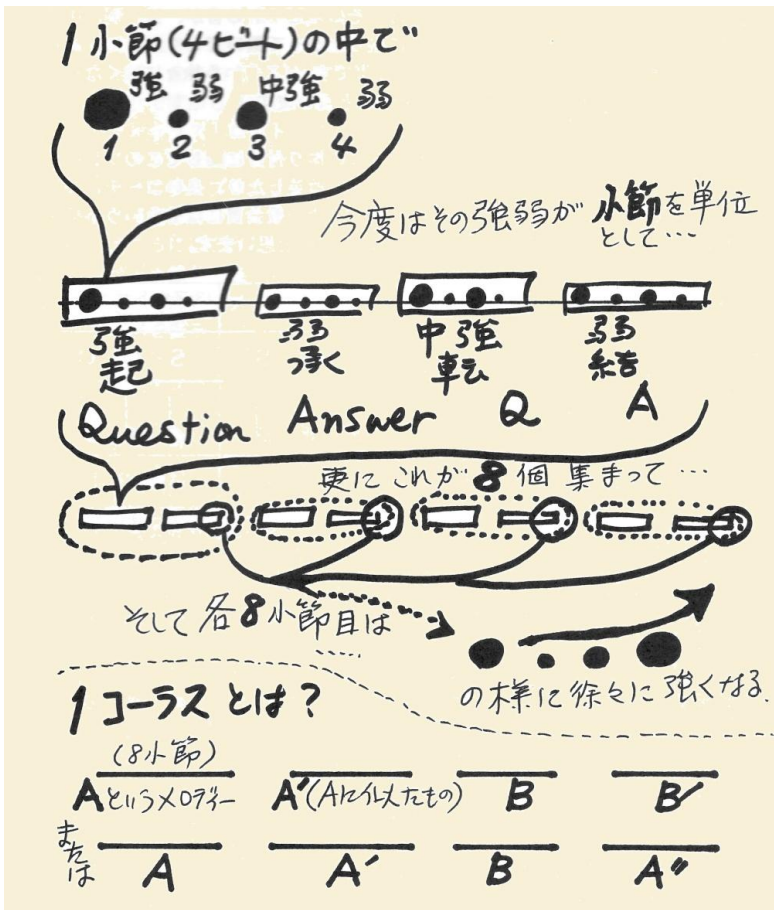 1小節(4ビート)の中で
強 弱 中強 弱
1 2 3 4
今度はその強弱が小節を単位
として…
強 弱 中強 弱
起 承 転 結
Question Answer Q A
更にこれが8個集まって…
そして各8小節目は
……
の様に徐々に強くなる.
1コーラスとは?
(8小節)
Aというメロディー A'(Aに似たもの) B B'
または
A A' B A"